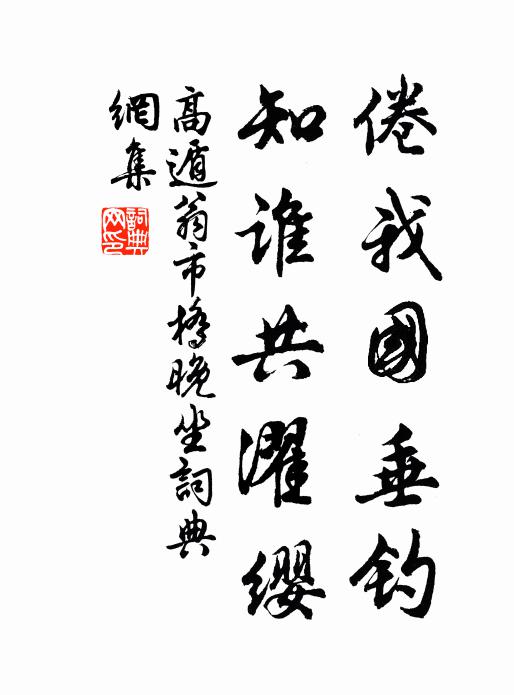 倦我國垂钓
知谁共濯缨
高遁翁市橋晚坐詞典
網集
詞典网印